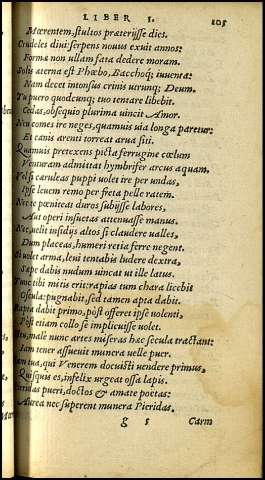 LIBER I.
105
Mœrentem, stultos praterijsse dies.
Crudeles diui: serpens nouus exuit annos:
Formæ non ullam fata dedere moram.
Solis æterna est Phœbo, Bacchoq; iuuenta:
Nam decet intonsus crinis utrunq; Deum.
Tu puero quodcunq; tuo tentare libebit.
Cedas, obsequio plurima uincit Amor.
Neu comes ire neges, quamuis uia longa paretur:
Et canis arenti torreat arua siti.
Quamuis pretexens picta ferrugine cœlum
Venturam admittat hymbrifer arcus aquam.
Vel si cæruleas puppi uolet ire per undas,
Ipse leuem remo per freta pelle ratem.
Nec te pœniteat duros subijsse labores,
Aut operi insuetas attenuasse manus.
Nec, uelit insidijs altos si claudere ualles,
Dum placeas, humeri retia ferre negent.
Si uolet arma, leui tentabis ludere dextra,
Sæpe dabis nudum uincat ut ille latus.
Tunc tibi mitis erit: rapias tum chara licebit
Oscula: pugnabit, sed tamen apta dabit.
Rapta dabit primo, pòst offeret ipse uolenti,
Pòst etiam collo se implicuisse uolet.
Heu, malè nunc artes miseras hæc secula tractant:
Iam tener assueuit munera uelle puer.
Iam tua, qui Venerem docuisti uendere primus,
Quisquis es, infelix urgeat ossa lapis.
Pieridas pueri, doctos & amate poëtas:
Aurea nec superent munera Pieridas.
g 5
Carm